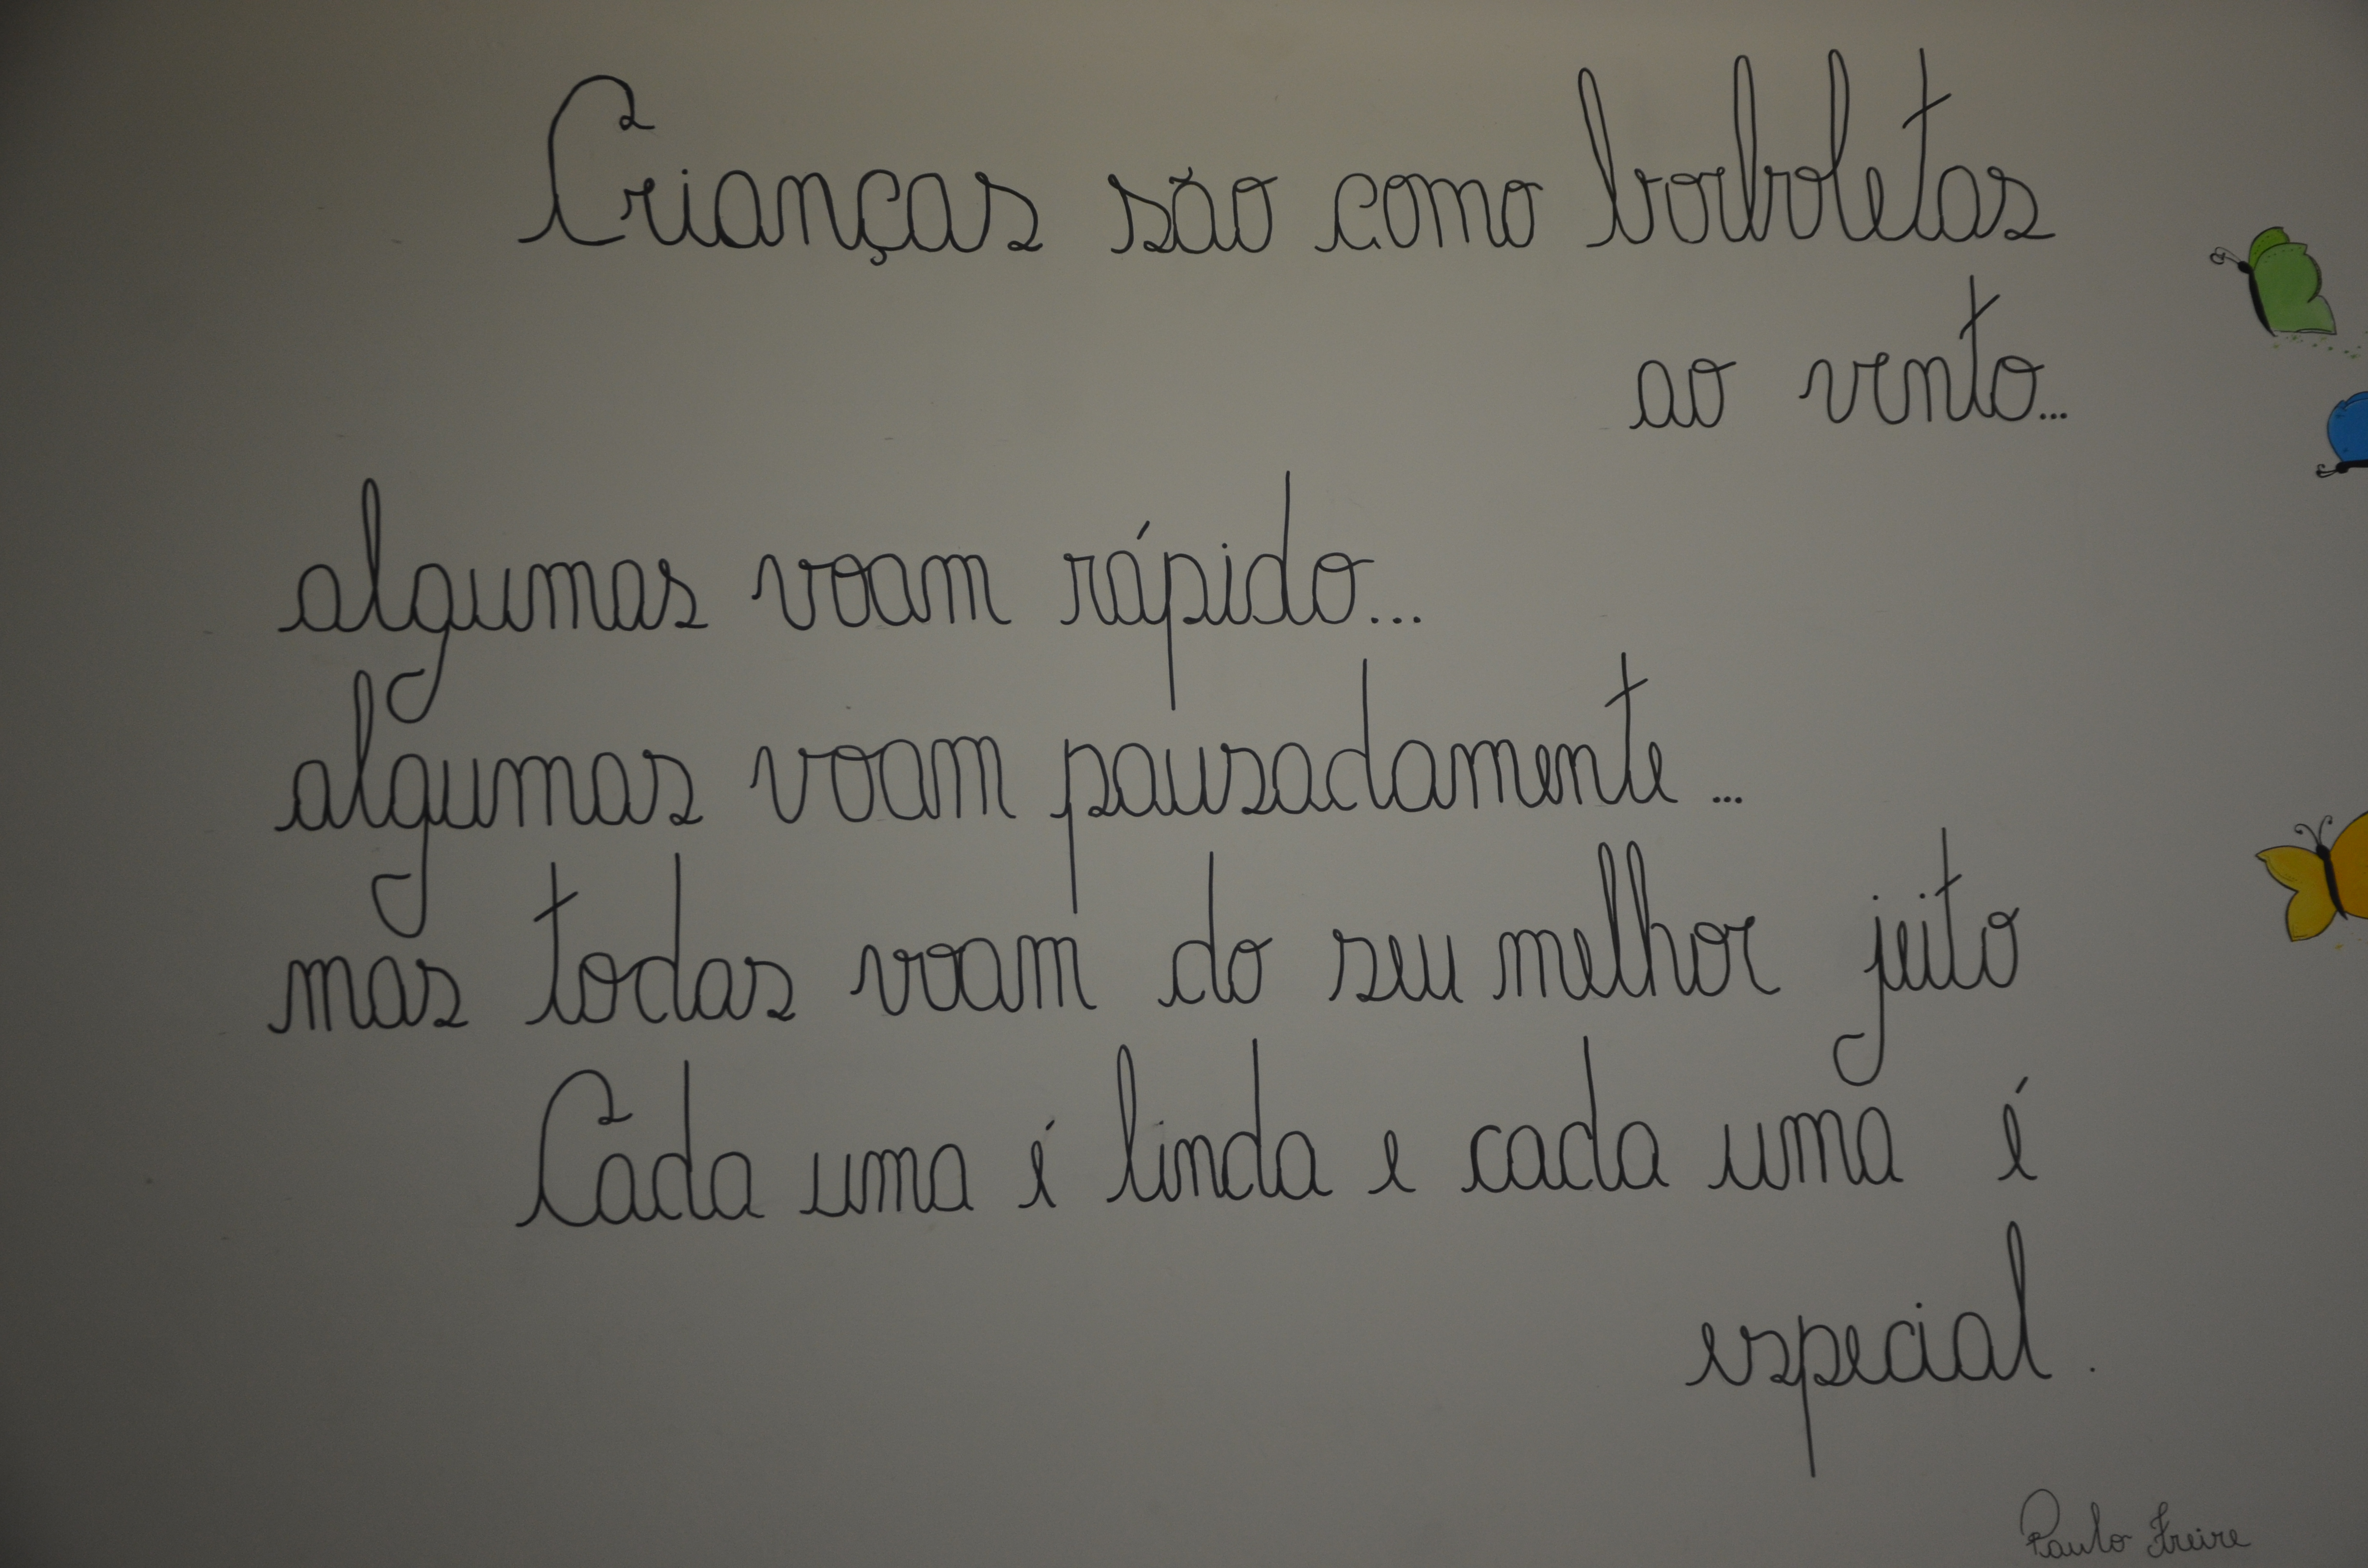 Crianças são como borboletas
ao vento...
algumas voam rápido...
algumas voam pausadamente...
mas todas voam do seu melhor jeito
Cada uma é linda e cada uma é
especial.
Paulo Freire